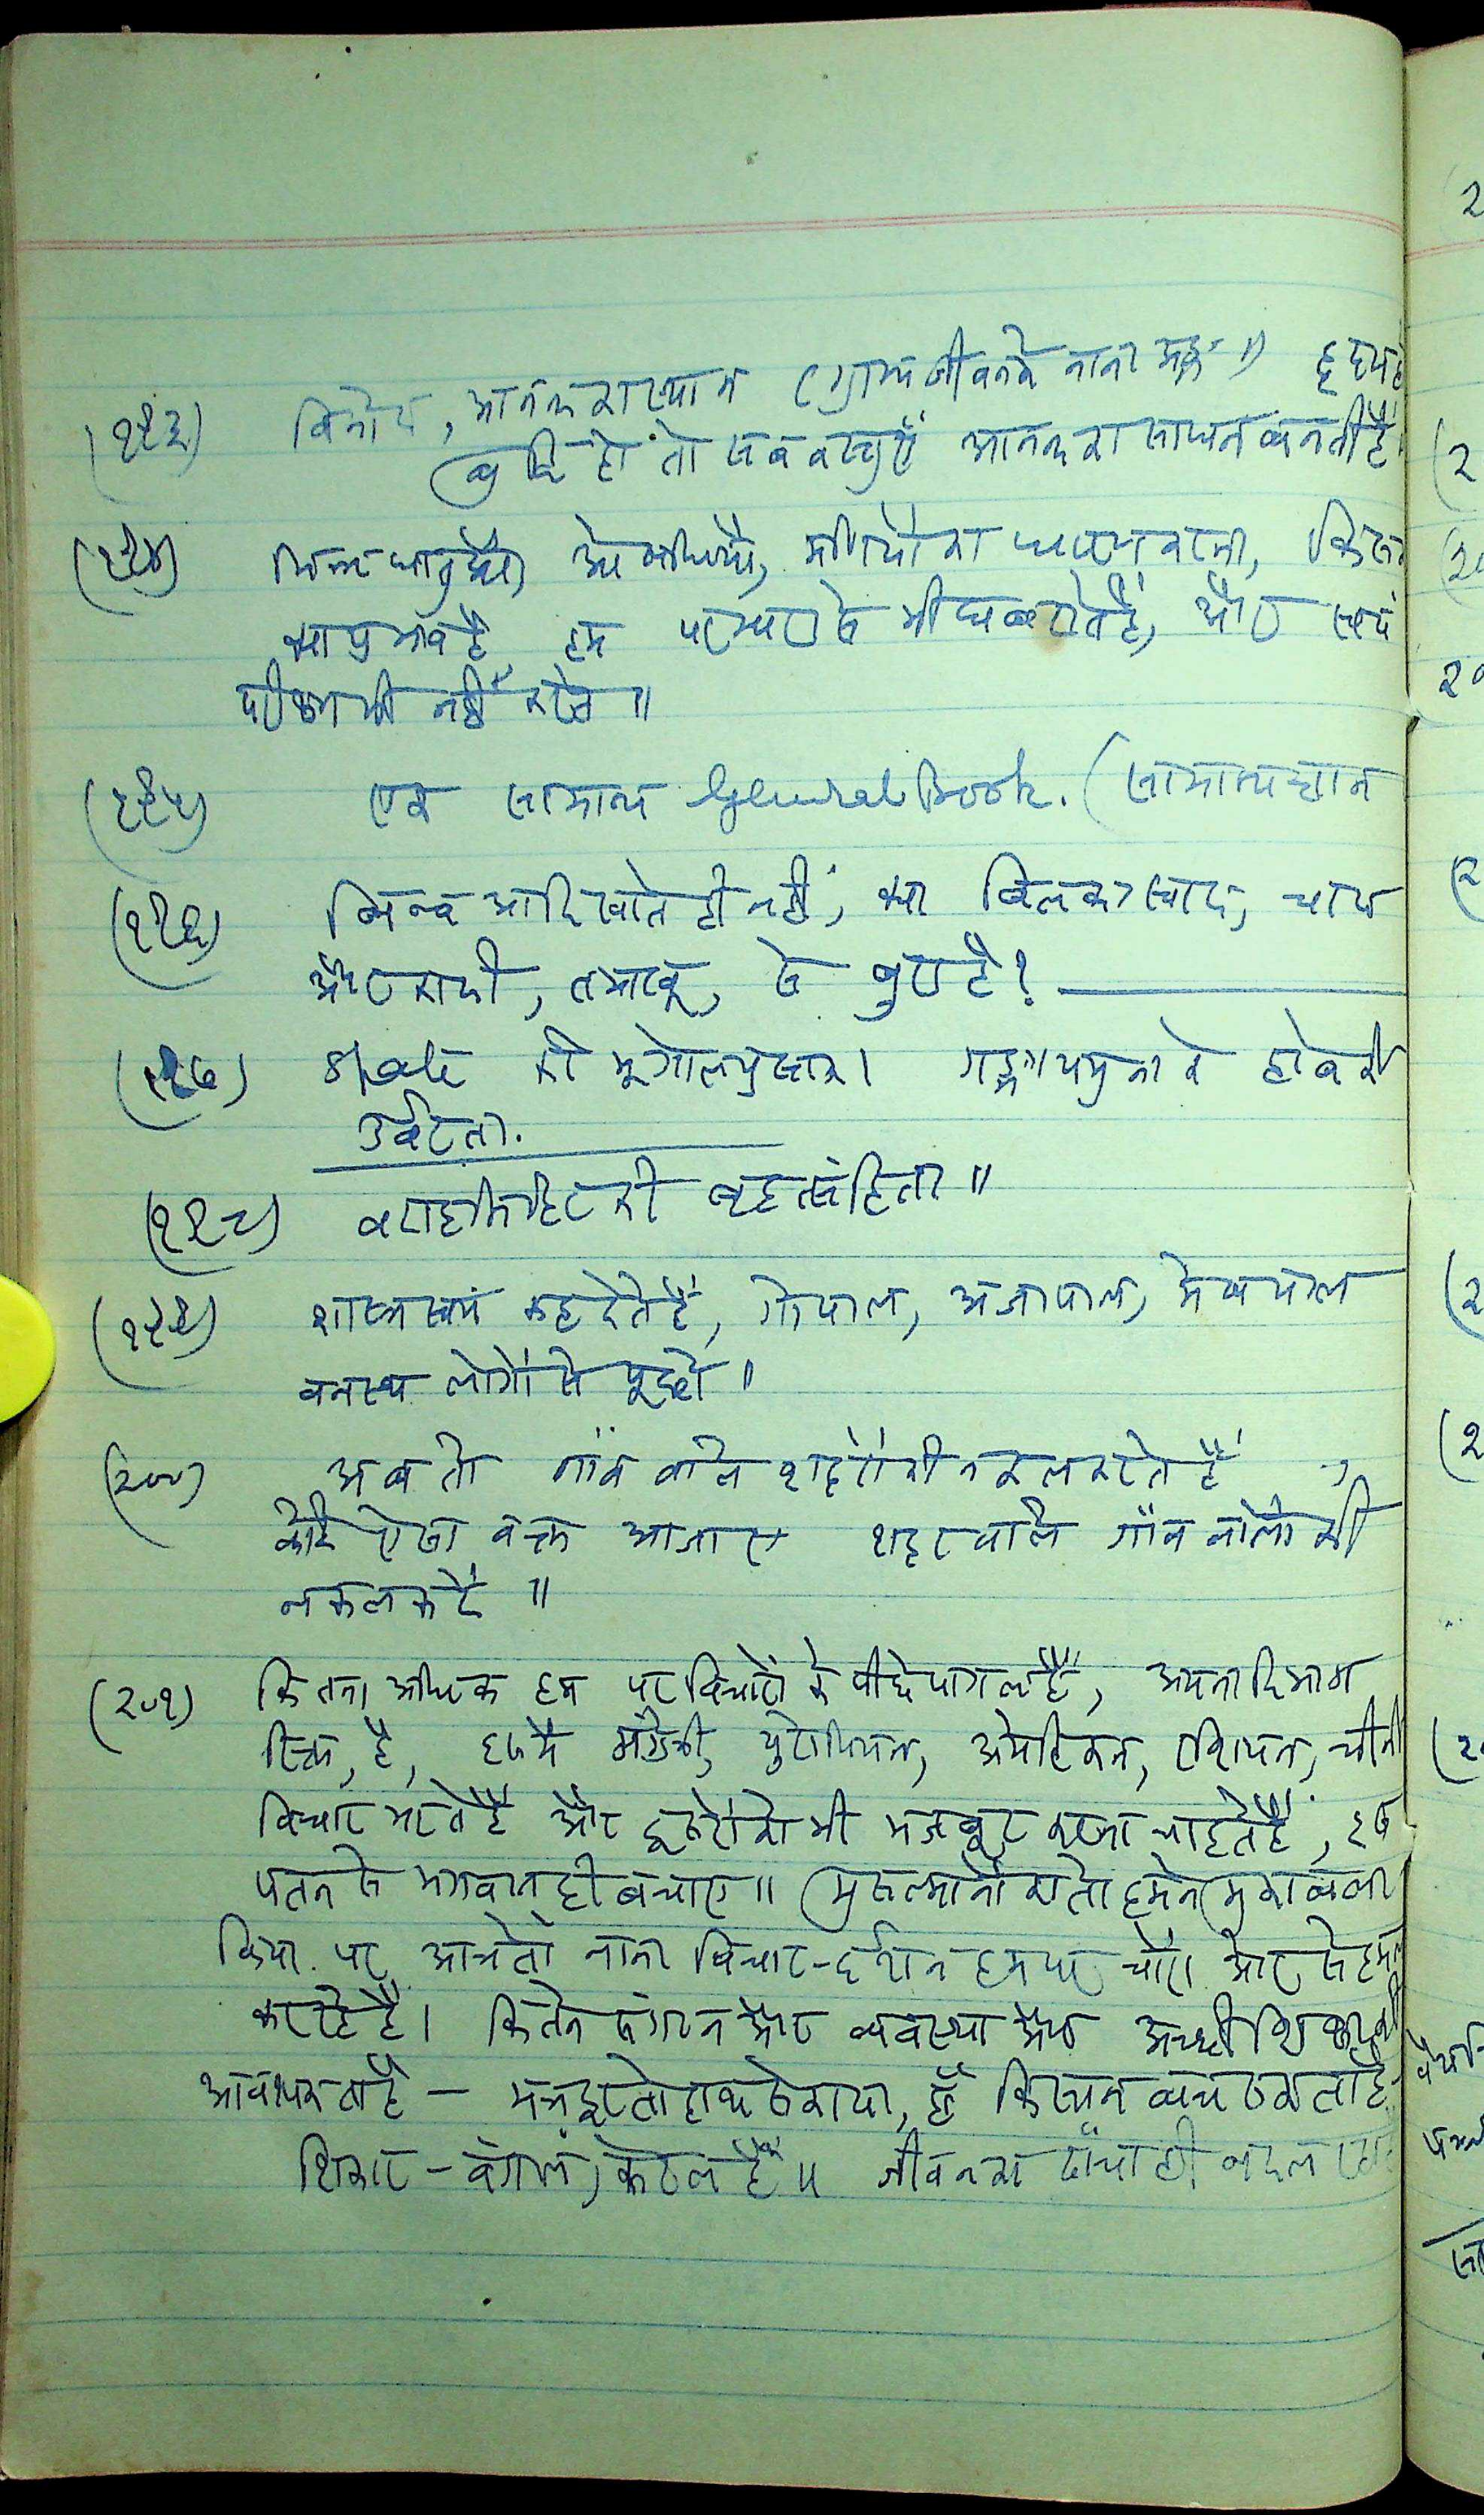 (१९३) विनोद, आनन्द का स्थान (ग्राम जीवन के नाना प्रकार॥) हृदय हो
बुद्धि हो तो सब वस्तुएँ आनन्द का साधन बनती हैं
(१९४) भिन्न धातुओं, औषधियों, मणियों का धारण करना, किसका
क्या प्रभाव है हम परम्परा से भी घबराते हैं, और स्वयं
परीक्षण भी नहीं करते॥
(१९५) एक सामान्य General Book. (सामान्य ज्ञान
(१९६) आदि खाते ही नहीं, क्या स्वाद, चाय
और काफी, तमाखू, से बुरा है?
(१९७) State की भूगोल पुस्तक। गङ्गा यमुना के दोआब की
उर्वरता.
(१९८) वराहमिहिर की बृहत्संहिता॥
(१९९) शास्त्र स्वयं कह देते हैं, गोपाल, अजापाल, मेषपाल
वनस्थ लोगों से पूछो॥
(२००) अब तो गाँव वाले शहरों की नकल करते हैं,
कोई ऐसा वक्त आजाए शहर वाले गाँव वालों की
नकल करें॥
(२०१) कितना अधिक हम पर विचारों के पीछे पागल हैं, अपना दिमाग
रिक्त, है, इसमें अंग्रेजी, युरोपियन, अमेरिकन, रशियन, चीनी
विचार भरते हैं और दूसरों को भी मजबूर करना चाहते हैं, इस
पतन से भगवान ही बचाए॥ (मुसल्मानों का तो हमने मुकाबला
किया. पर आज तो नाना विचार-दर्शन हम पर चारों ओर से हमला
कर रहे हैं। कितने संगठन और व्यवस्था और अच्छी शिक्षा की
आवश्यकता है - मजदूर तो हाथ से गया, हाँ किसान बच सकता है
शिकार - बंगाल, केरल हैं॥ जीवन का ढाँचा ही बदल